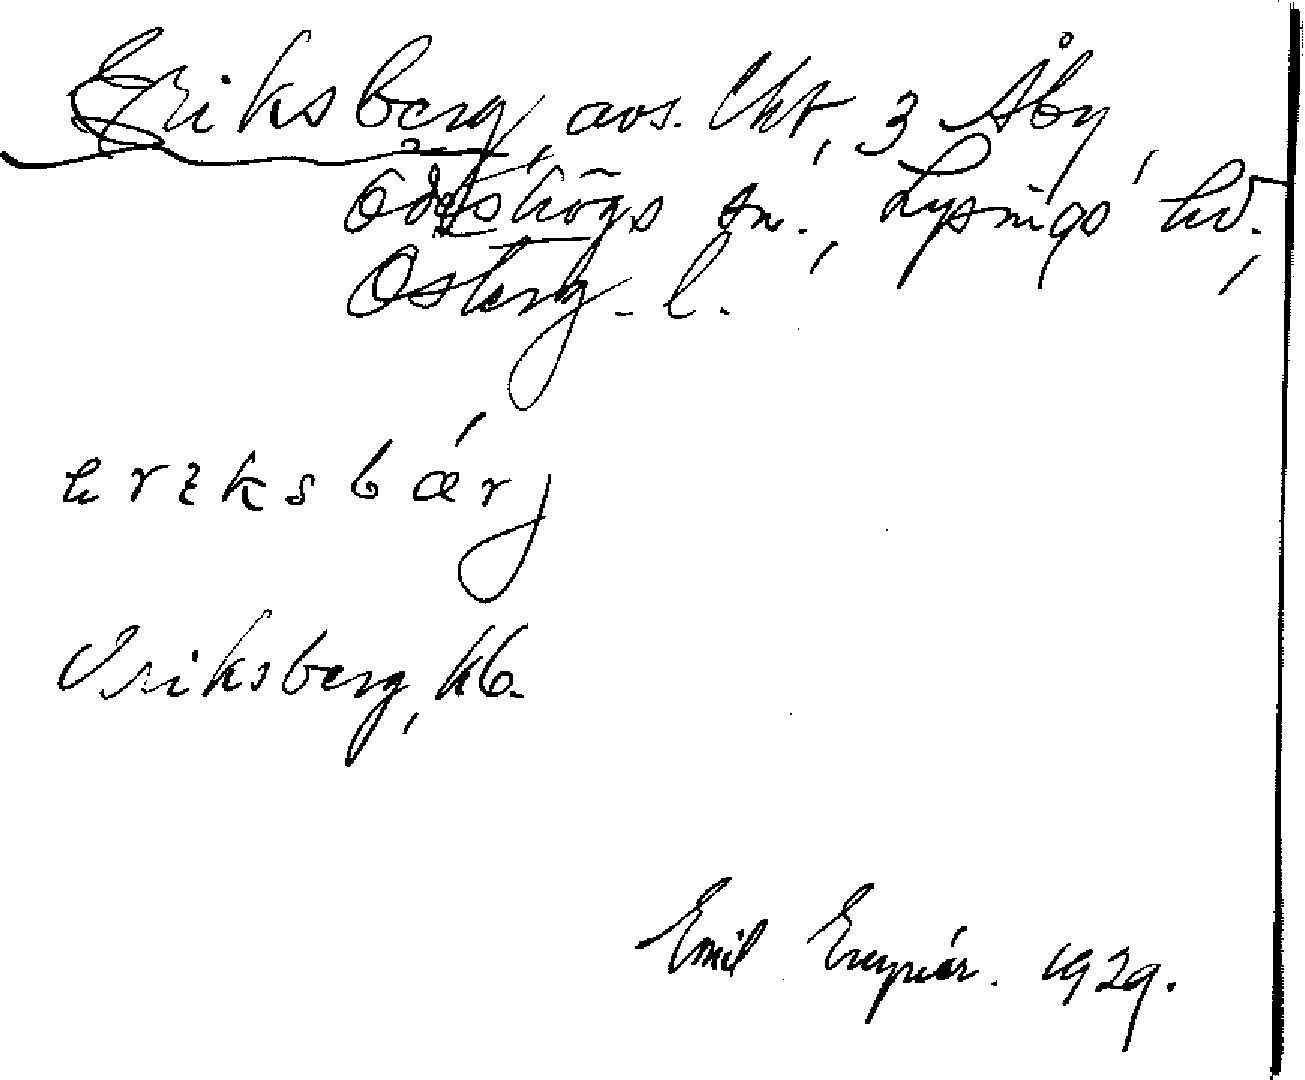 Eriksberg, avs. lht, 3 Åby,
Ödeshögs sn., Lysings hd.,
Österg. l.
eriksbäŕj
Eriksberg, kb.
Emil 1929.